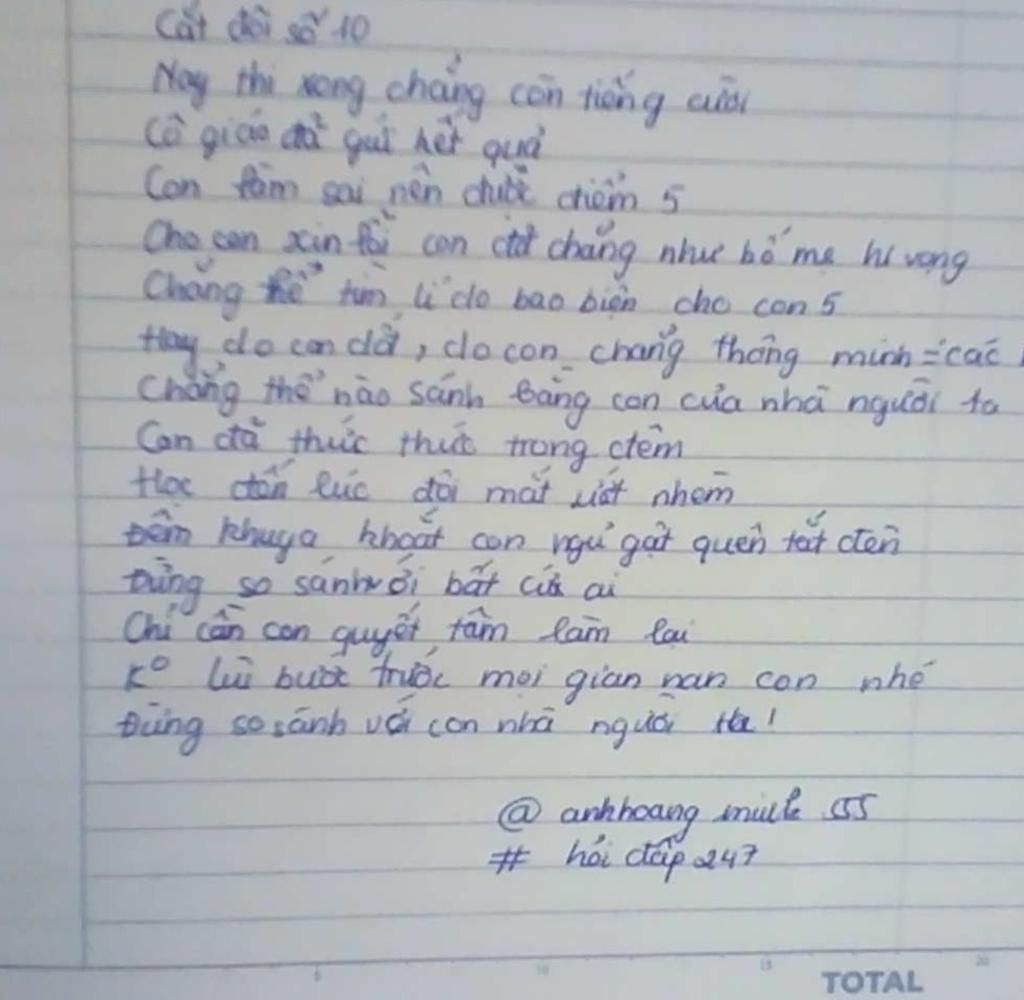 Cắt đôi số 10
Nay thi xong chẳng còn tiếng cười
Cô giáo đã gửi hết quả
Con làm sai nên được điểm 5
Cho con xin lỗi con đã chẳng như bố mẹ hi vọng
Chẳng thể tìm lí do bao biện cho con 5
Hay do con dở, do con chẳng thông minh = các
Chẳng thể nào sánh bằng con của nhà người ta
Con đã thức thức trong đêm
Học đến lúc đôi mắt ướt nhèm
Đêm khuya khoắt con ngủ gật quên tắt đèn
Đừng so sánh với bất cứ ai
Chỉ cần con quyết tâm làm lại
K° lùi bước trước mọi gian nan con nhé
Đừng so sánh với con nhà người ta!
@ anhhoang 555
# hỏi đáp 247
5 10 15 20
TOTAL